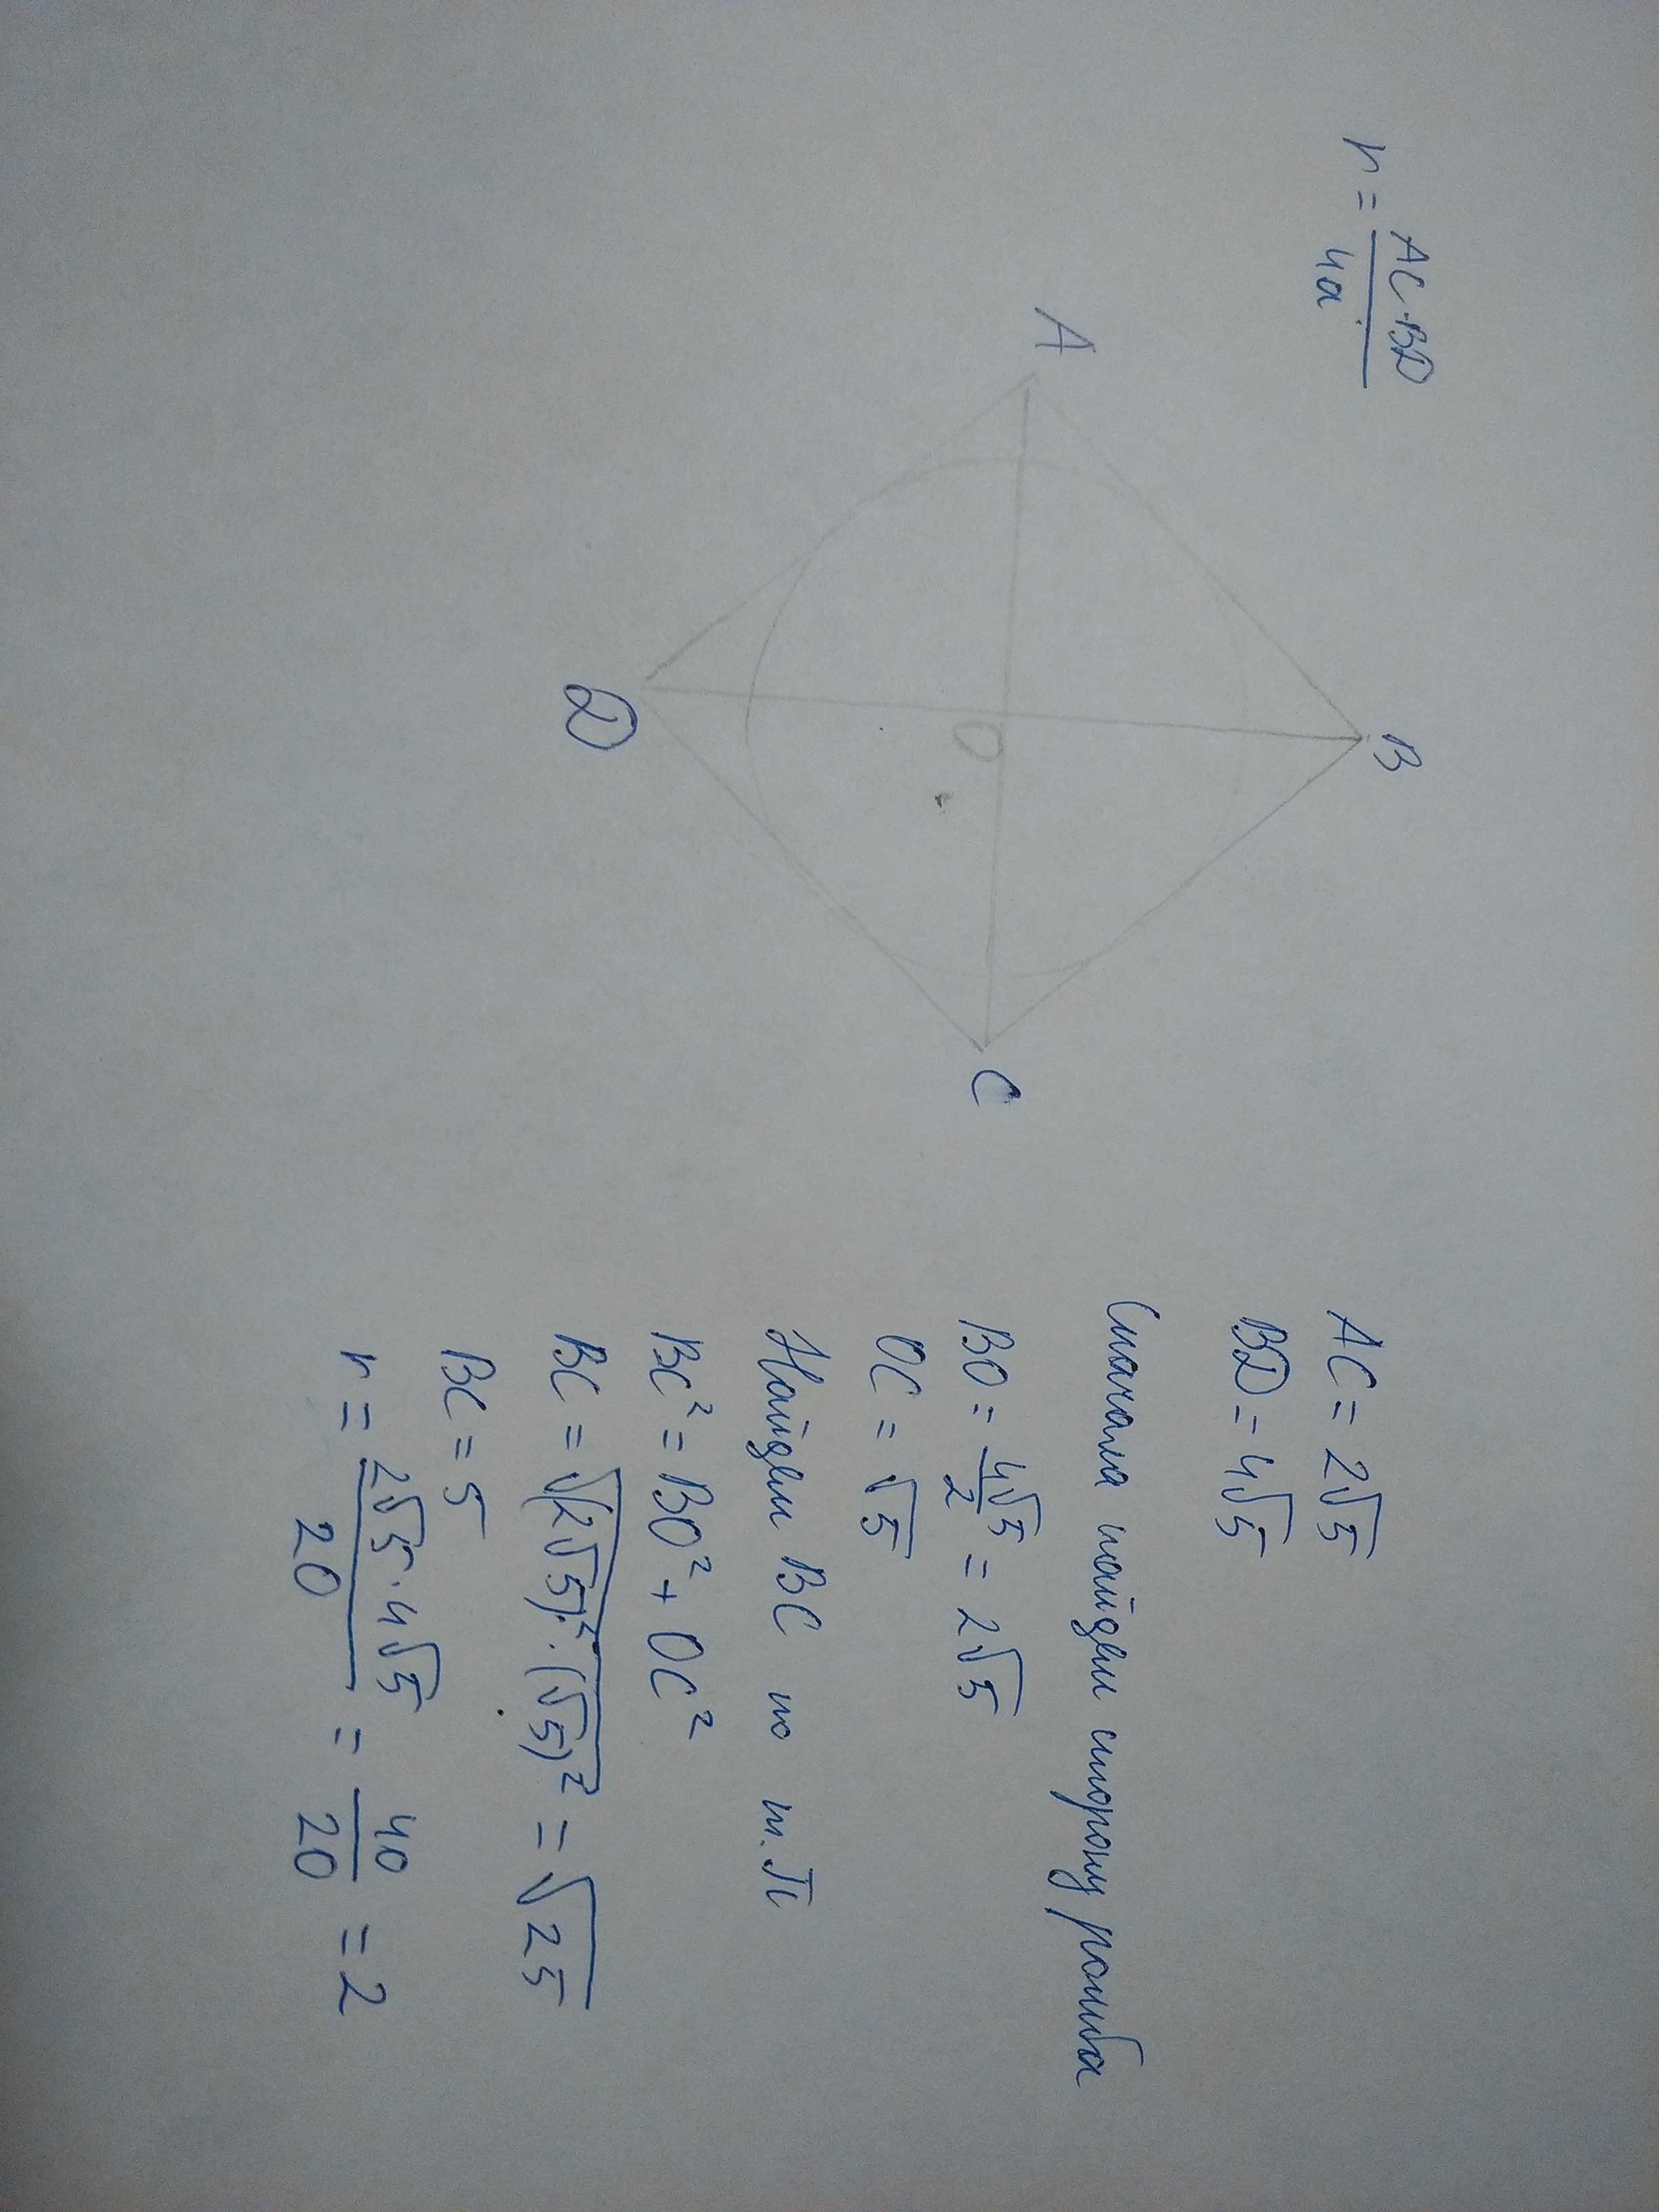 r = AC·BD / 4a
A
B
C
D
O
AC = 2√5
BD = 4√5
Сначала найдем сторону ромба
BO = 4√5 / 2 = 2√5
OC = √5
Найдем BC по т. Пи
BC² = BO² + OC²
BC = √(2√5)² · (√5)² = √25
BC = 5
r = 2√5 · 4√5 / 20 = 40 / 20 = 2